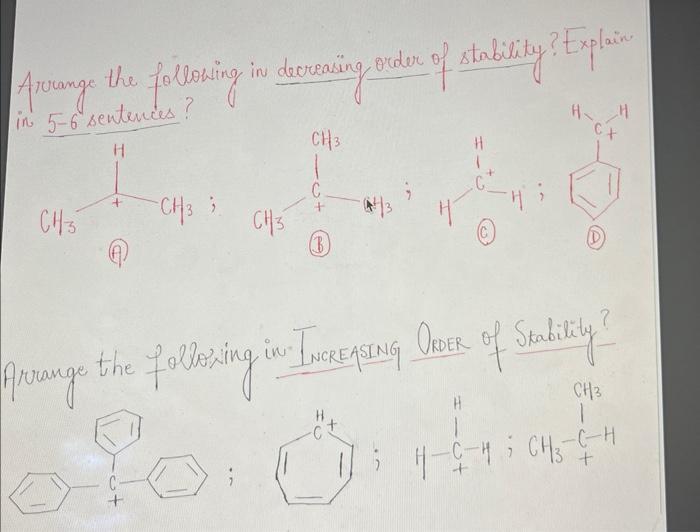 Arrange the following in decreasing order of stability? Explain
in 5-6 sentences?
H
CH3 + CH3 ;
A
CH3
C
CH3 + CH3 ;
B
H
C +
H H ;
C
H H
C +
D
Arrange the following in INCREASING ORDER of Stability?
C
+
;
H
C +
;
H
H-C-H ;
+
CH3
CH3-C-H
+